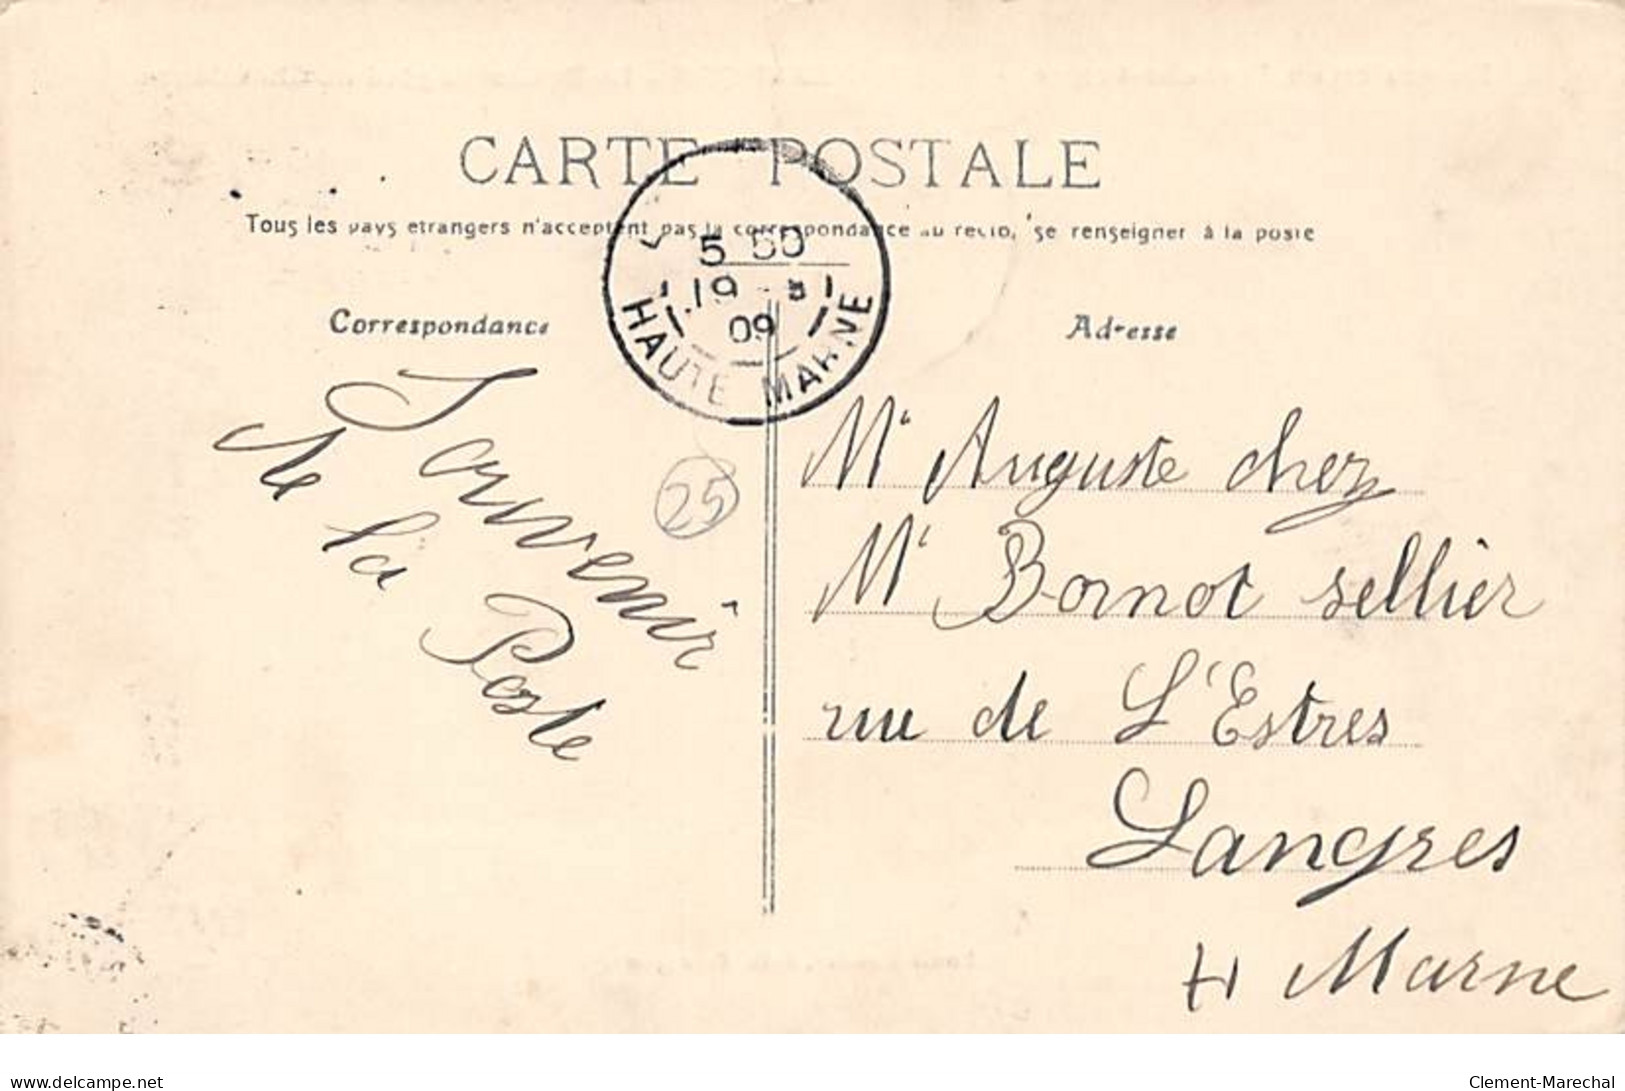 CARTE POSTALE
Tous les pays etrangers n'acceptent pas la correspondance au recto, se renseigner à la poste
5 50
19
09
HAUTE MARNE
Correspondance
Adresse
Souvenir
de la Poste
25
Mr Auguste chez
Mr Bornot sellier
rue de L'Estres
Langres
H Marne
delcampe.net
Clement-Marechal